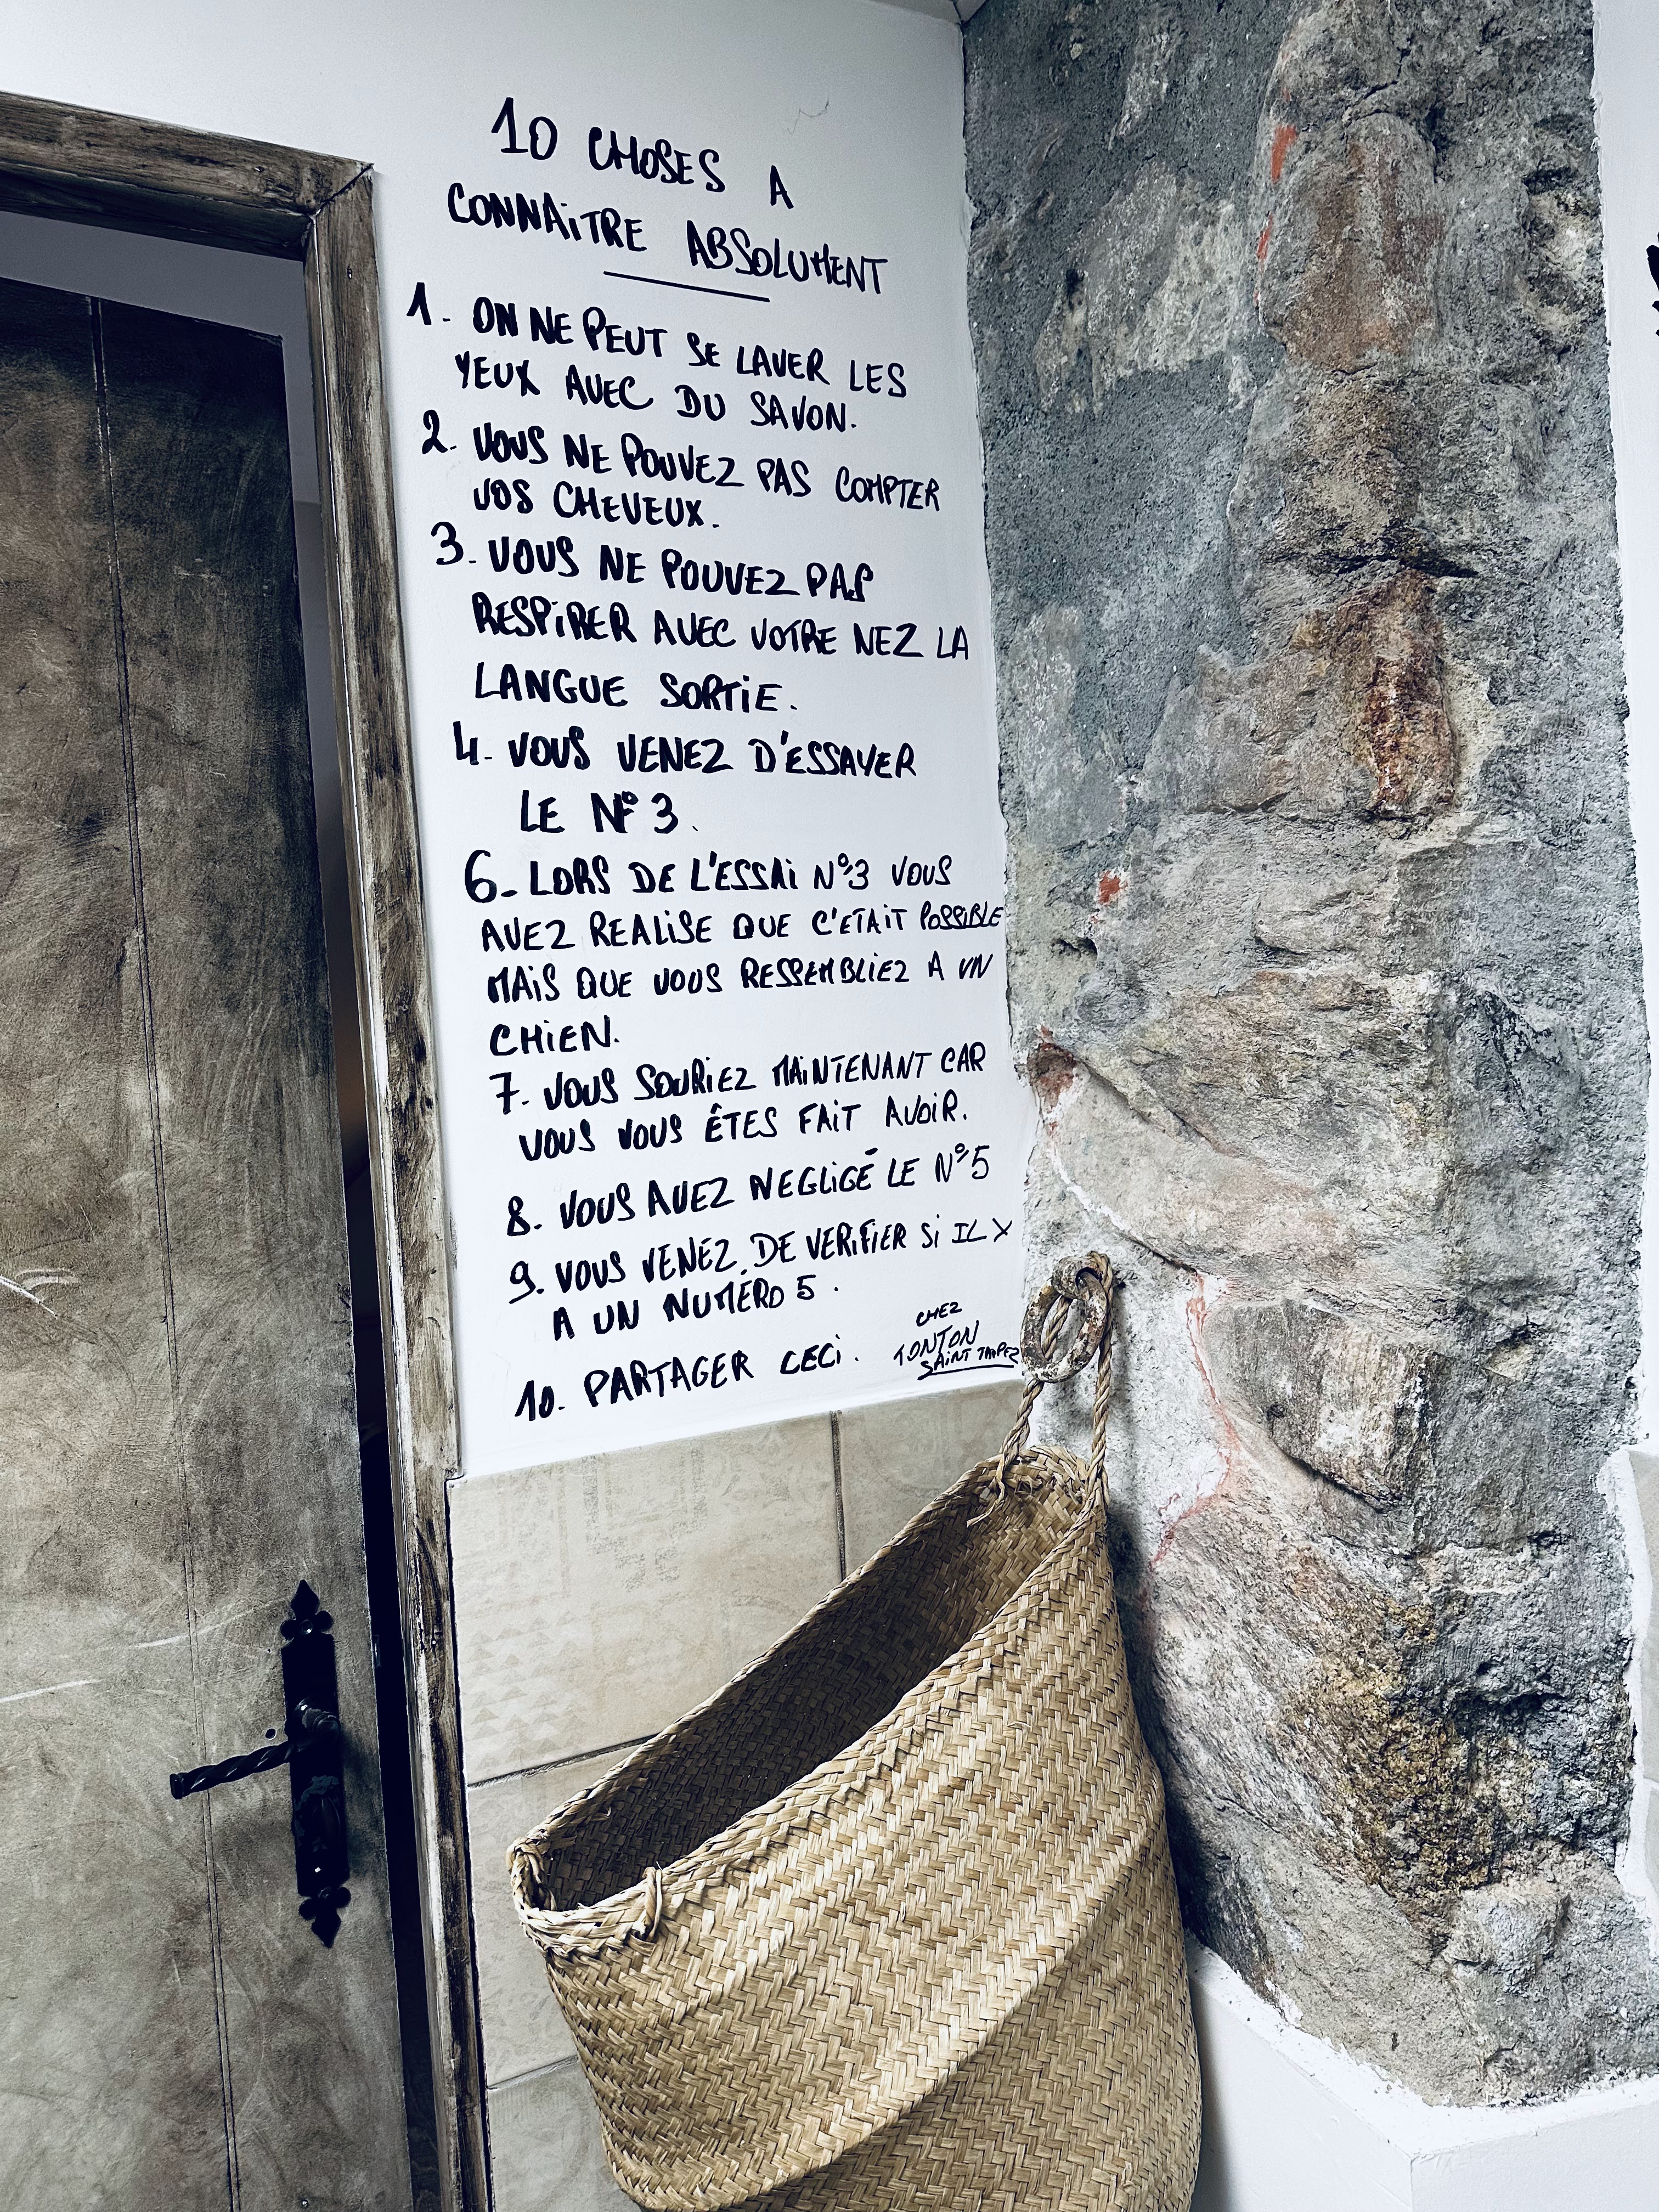 10 CHOSES A
CONNAiTRE ABSOLUMENT
1. ON NE PEUT SE LAVER LES
YEUX AVEC DU SAVON.
2. VOUS NE POUVEZ PAS COMPTER
VOS CHEVEUX.
3. VOUS NE POUVEZ PAS
RESPiRER AVEC VOTRE NEZ LA
LANGUE SORTiE.
4. VOUS VENEZ D'ESSAYER
LE N° 3.
6. LORS DE L'ESSAi N°3 VOUS
AVEZ REALiSE QUE C'ETAiT POSSiBLE
MAiS QUE VOUS RESSEMBLiEZ A UN
CHiEN.
7. VOUS SOURiEZ MAiNTENANT CAR
VOUS VOUS ÊTES FAiT AVOiR.
8. VOUS AVEZ NEGLiGÉ LE N°5
9. VOUS VENEZ DE VERiFiER Si IL Y
A UN NUMÉRO 5.
10. PARTAGER CECi.
CHEZ
TONTON
SAiNT TROPEZ